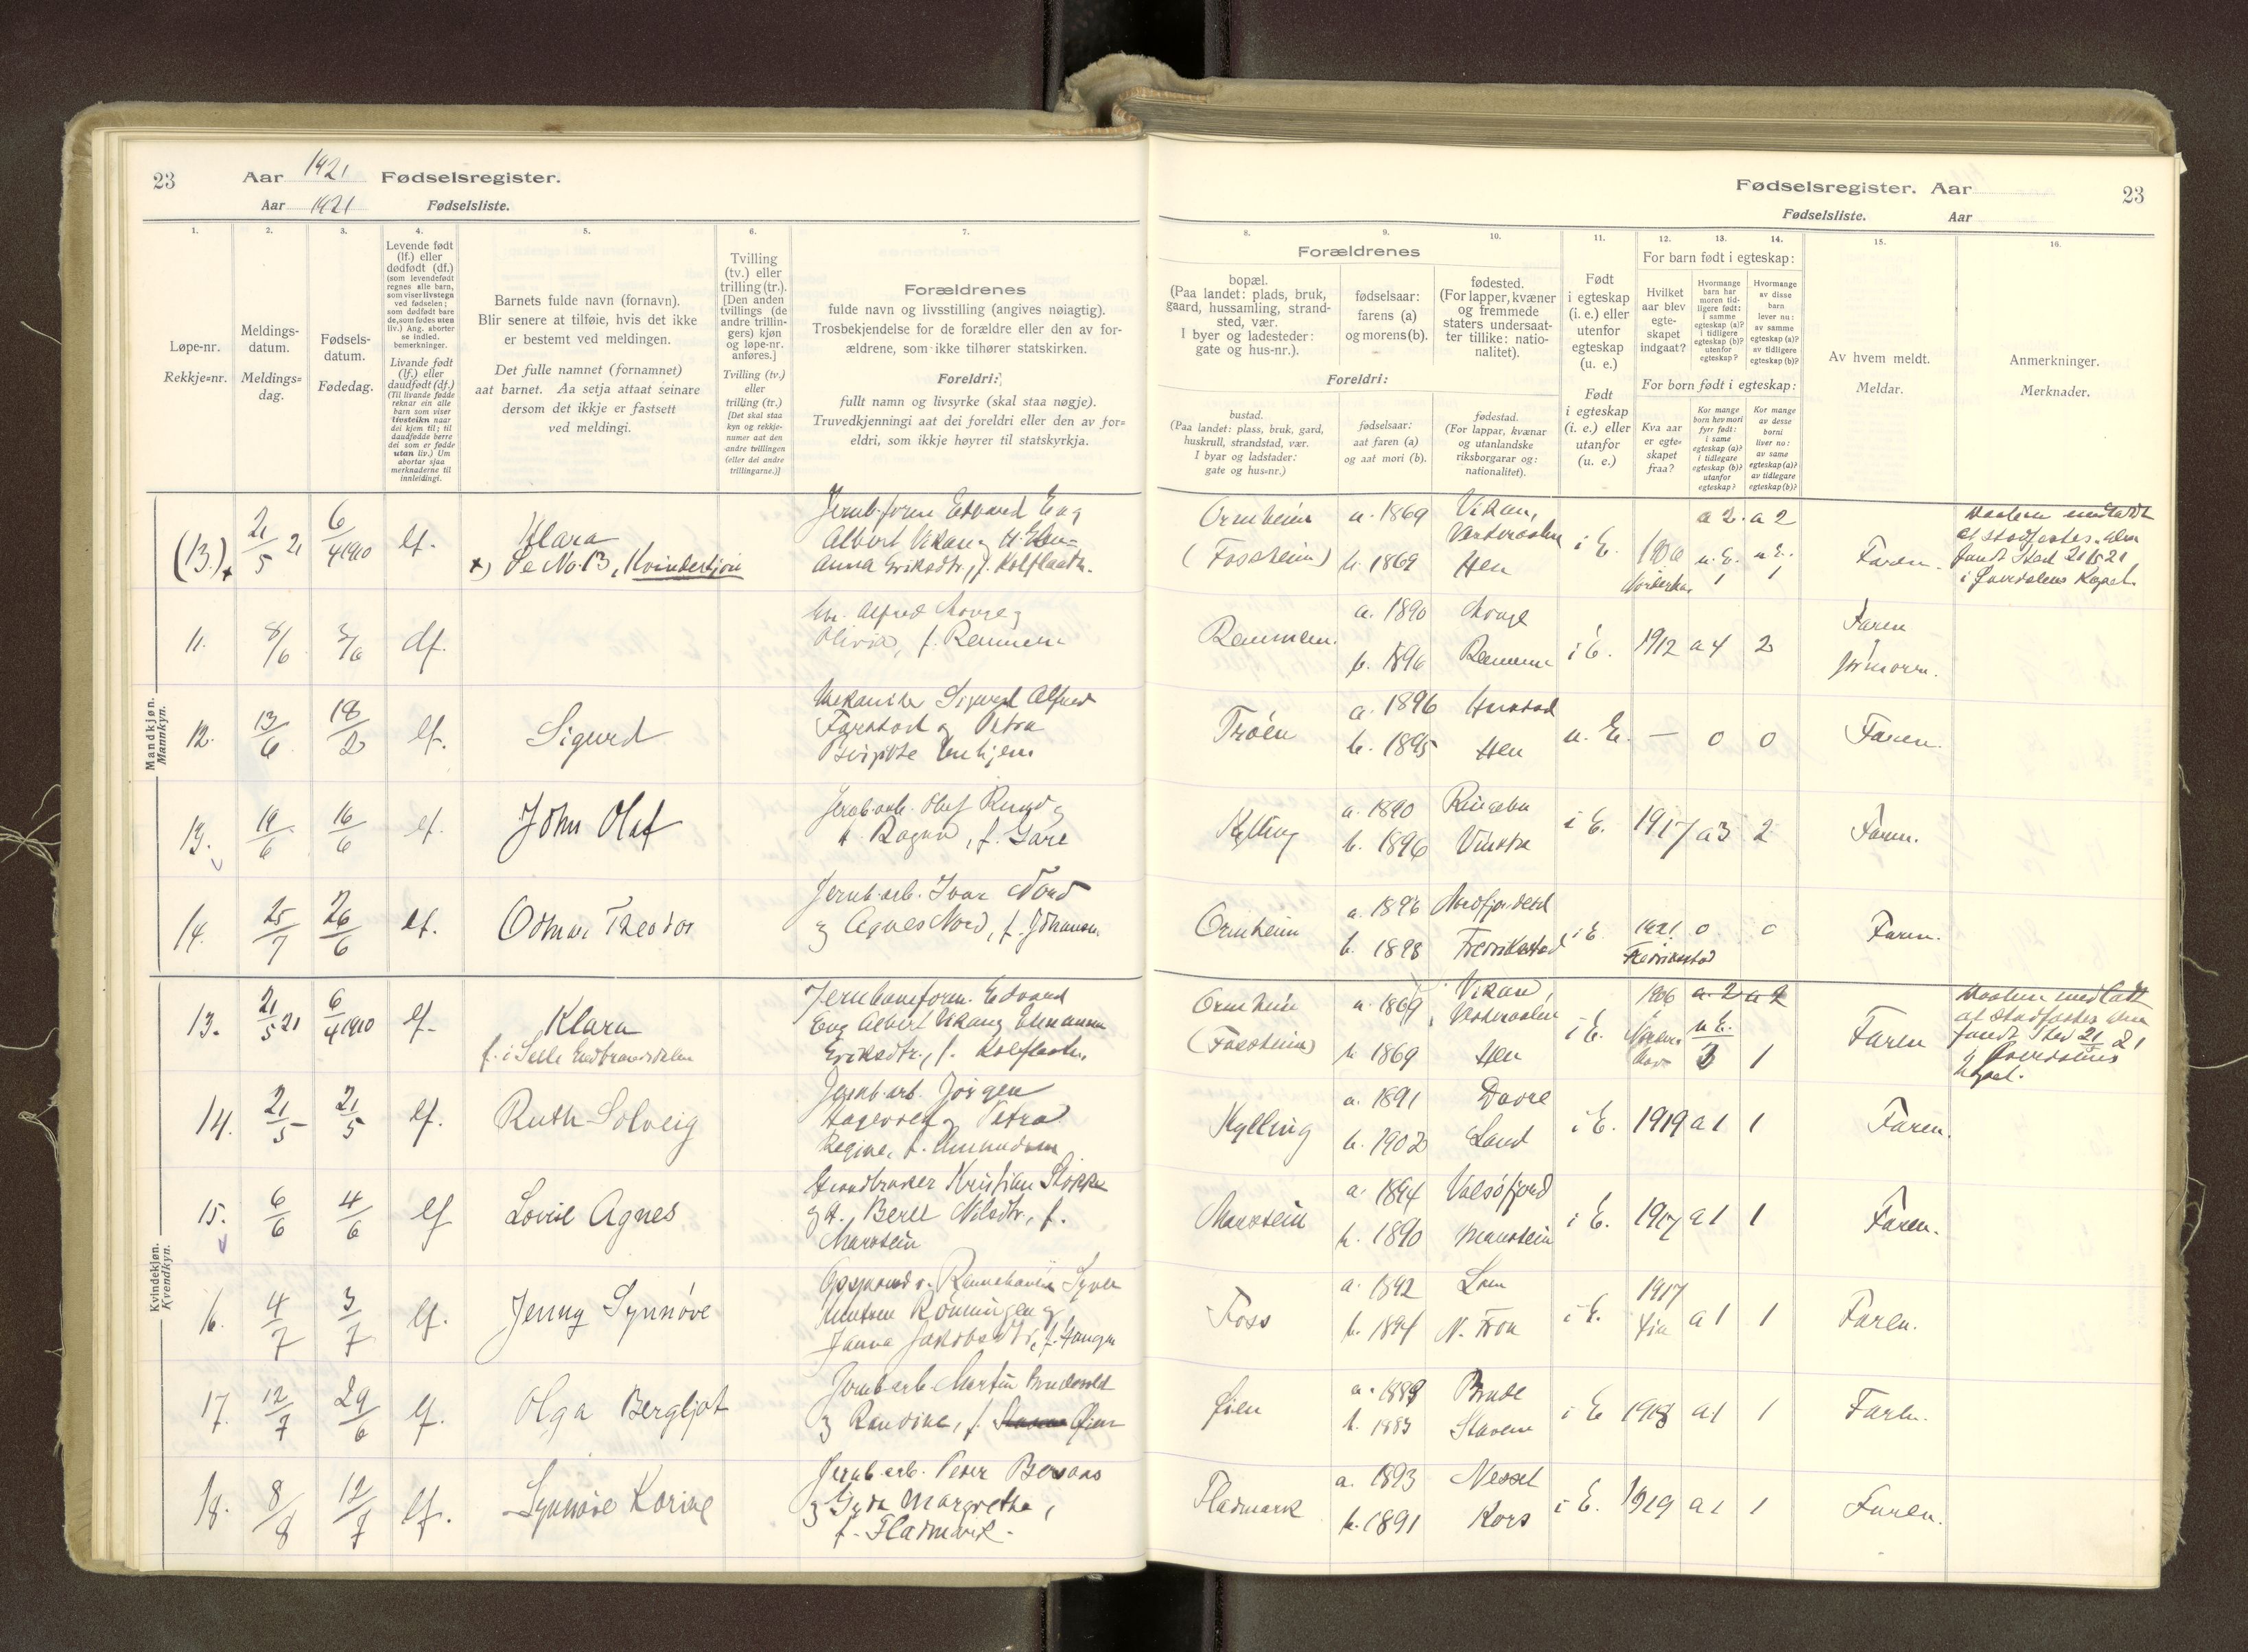 23 Aar 1921 Fødselsregister.
Aar 1921 Fødselsliste.
Fødselsregister. Aar 23
Fødselsliste. Aar
1. 2. 3. 4. 5. 6. 7. 8. 9. 10. 11. 12. 13. 14. 15. 16.
Løpe-nr.
Rekkje=nr.
Meldings-
datum.
Meldings=
dag.
Fødsels-
datum.
Fødedag.
Levende født
(lf.) eller
dødfødt (df.)
(som levendefødt
regnes alle barn,
som viser livstegn
ved fødselen;
som dødfødt bare
de, som fødes uten
liv.) Ang. aborter
se indled.
bemerkninger.
Livande født
(lf.) eller
daudfødt (df.)
(Til livande fødde
reknar ein alle
barn som viser
livsteikn naar
dei kjem til; til
daudfødde berre
dei som er fødde
utan liv.) Um
abortar sjaa
merknaderne til
innleidingi.
Barnets fulde navn (fornavn).
Blir senere at tilføie, hvis det ikke
er bestemt ved meldingen.
Det fulle namnet (fornamnet)
aat barnet. Aa setja attaat seinare
dersom det ikkje er fastsett
ved meldingi.
Tvilling
(tv.) eller
trilling (tr.).
[Den anden
tvillings (de
andre trillin-
gers) kjøn
og løpe-nr.
anføres.]
Tvilling (tv.)
eller
trilling (tr.)
[Det skal staa
kyn og rekkje-
numer aat den
andre tvillingen
(eller dei andre
trillingarne.)]
Forældrenes
fulde navn og livsstilling (angives nøiagtig).
Trosbekjendelse for de forældre eller den av for-
ældrene, som ikke tilhører statskirken.
Foreldri:
fullt namn og livsyrke (skal staa nøgje).
Truvedkjenningi aat dei foreldri eller den av for=
eldri, som ikkje høyrer til statskyrkja.
Forældrenes
bopæl.
(Paa landet: plads, bruk,
gaard, hussamling, strand-
sted, vær.
I byer og ladesteder:
gate og hus-nr.).
fødselsaar:
farens (a)
og morens (b).
fødested.
(For lapper, kvæner
og fremmede
staters undersaat-
ter tillike: natio-
nalitet).
Foreldri:
bustad.
(Paa landet: plass, bruk, gard,
huskrull, strandstad, vær.
I byar og ladstader:
gate og hus-nr.)
fødselsaar:
aat faren (a)
og aat mori (b).
fødestad.
(For lappar, kvænar
og utanlandske
riksborgarar og:
nationalitet).
Født
i egteskap
(i. e.) eller
utenfor
egteskap
(u. e.)
Født
i egteskap
(i. e.) eller
utanfor
(u. e.)
For barn født i egteskap:
Hvilket
aar blev
egte-
skapet
indgaat?
Hvormange
barn har
moren tid-
ligere født:
i samme
egteskap (a)?
i tidligere
egteskap (b)?
utenfor
egteskap?
Hvormange
av disse
barn
lever nu:
av samme
egteskap (a)?
av tidligere
egteskap (b)?
For born født i egteskap:
Kva aar
er egte-
skapet
fraa?
Kor mange
born hev mori
fyrr født:
i same
egteskap (a)?
i tidlegare
egteskap (b)?
utanfor
egteskap?
Kor mange
av desse
borni
liver no:
av same
egteskap (a)?
av tidlegare
egteskap (b)?
Av hvem meldt.
Meldar.
Anmerkninger.
Merknader.
Mandkjøn.
Mannkyn.
(13.) 21/5 21 6/4 1910 lf. Klara
x) Se No. 13, Kvindekjøn
Jernb.form. Edvard Eng
Albert Vikan og H.
Anna Eriksdtr., f. Kolflaatn.
Ormheim (Fossheim) a. 1869 b. 1869 Vikan, Hen i E. 1906 a 2 a 2 u. E. 1 1 Faren.
11. 8/6 df. Alfred
Olivia, f. Remmem
Remmem. a. 1890 b. 1896 Remmem i E. 1912 a 4 2 Faren
12. 13/6 18/2 lf. Sigurd
Mekaniker Sigurd Alfred
Farstad og Petra
Trøen a. 1896 b. 1895 Hen u. E. — 0 0 Faren.
13. 19/6 16/6 lf. John Olaf
Jernb.arb. Olaf
Kylling a. 1890 b. 1896 Ringebu Vinstra i E. 1917 a 3 2 Faren.
14. 25/7 26/6 lf. Odmar Theodor
Jernb.arb. Ivar Nord
og Agnes Nord, f. Johansen.
Ormheim a. 1896 b. 1898 Fredrikstad i E. 1921 Fredrikstad 0 0 Faren.
Kvindekjøn.
Kvendkyn.
13. 21/5 21 6/4 1910 lf. Klara
f. i Selle Gudbrandsdalen
Jernbaneform. Edvard
Eng Albert Vikan og
Eriksdtr., f. Kolflaatn.
Ormheim (Fossheim) a. 1869 b. 1869 Vikan, Hen i E. 1906 a 2 a 2 u E. 1 Faren
14. 21/5 21/5 lf. Ruth Solveig
Jernb.arb. Jørgen
og Petra
Regine, f. Amundsen
Kylling a. 1891 b. 1902 Dovre Land i E. 1919 a 1 1 Faren.
15. 6/6 4/6 lf Lovise Agnes
Gaardbruker Kristian Stokke
og H. Berit Nilsdtr., f.
Marstein
Marstein a. 1894 b. 1890 Valsøfjord Marstein i E. 1917 a 1 1 Faren.
16. 4/7 3/7 lf. Jenny Synnøve
Opsynsmd v. Raumabanen Syver
Knutsen Rønningen og
Janna Jakobsdtr.,
Foss a. 1892 b. 1894 Lom N. Fron i E. 1917 a 1 1 Faren.
17. 12/7 29/6 lf. Olga Bergljot
Jernb.arb. Martin Brudevold
og Randine, f. Øien
Øien a. 1889 b. 1883 Stavem i E 1918 a 1 1 Faren.
18. 8/8 12/7 lf. Synnøve Karine
Jernb.arb. Peter
og Gyda Margrethe,
f. Fladmark.
Fladmark a. 1893 b. 1891 Nesset Kors i E. 1919 a 1 1 Faren.